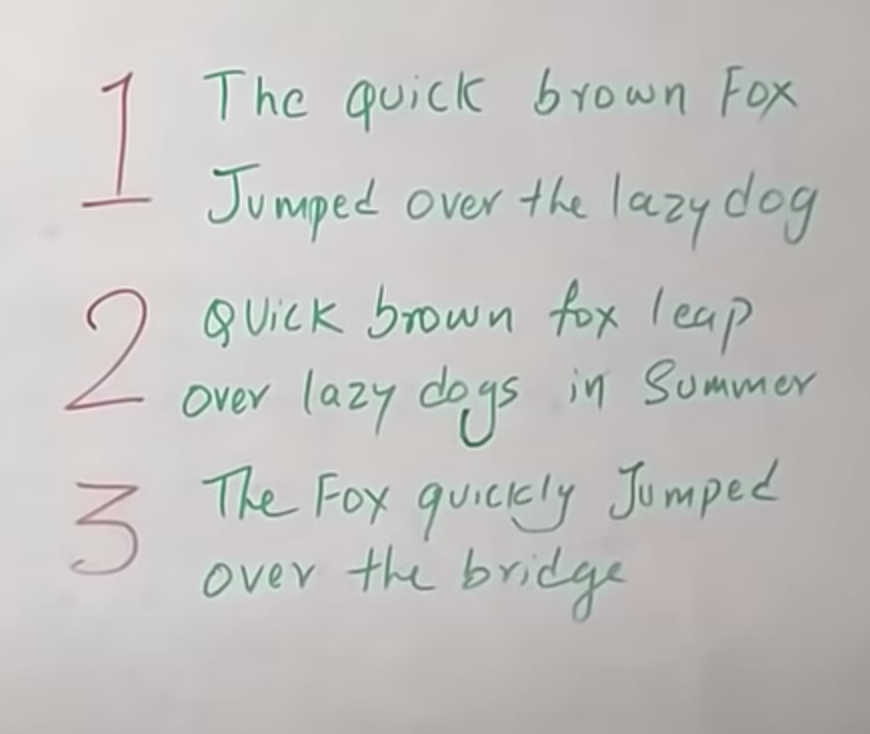 1 The quick brown Fox
Jumped over the lazy dog
2 Quick brown fox leap
over lazy dogs in Summer
3 The Fox quickly Jumped
over the bridge